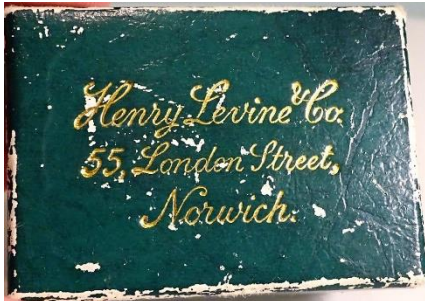 Henry Levine & Co.
55, London Street,
Norwich.